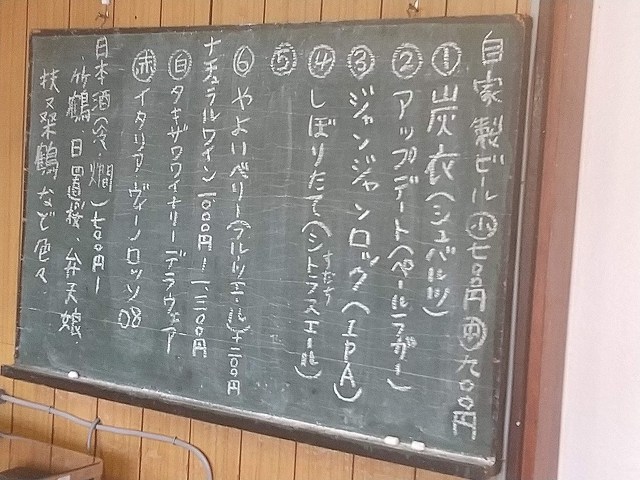 自家製ビール 小 七〇〇円 中 九〇〇円
① 炭衣(シュバルツ)
② アップデート(ペールラガー)
③ ジャンジャンロック(IPA)
④ しぼりたて(シトラスエール)
すだち
⑤
⑥ やよいベリー(フルーツエール)+二〇〇円
ナチュラルワイン 一、〇〇〇円/一、三〇〇円
白 タキザワワイナリー デラウェア
赤 イタリア ヴィーノロッソ 08
日本酒(冷、燗) 七〇〇円ー
竹鶴、日置桜、弁天娘
扶桑鶴など色々